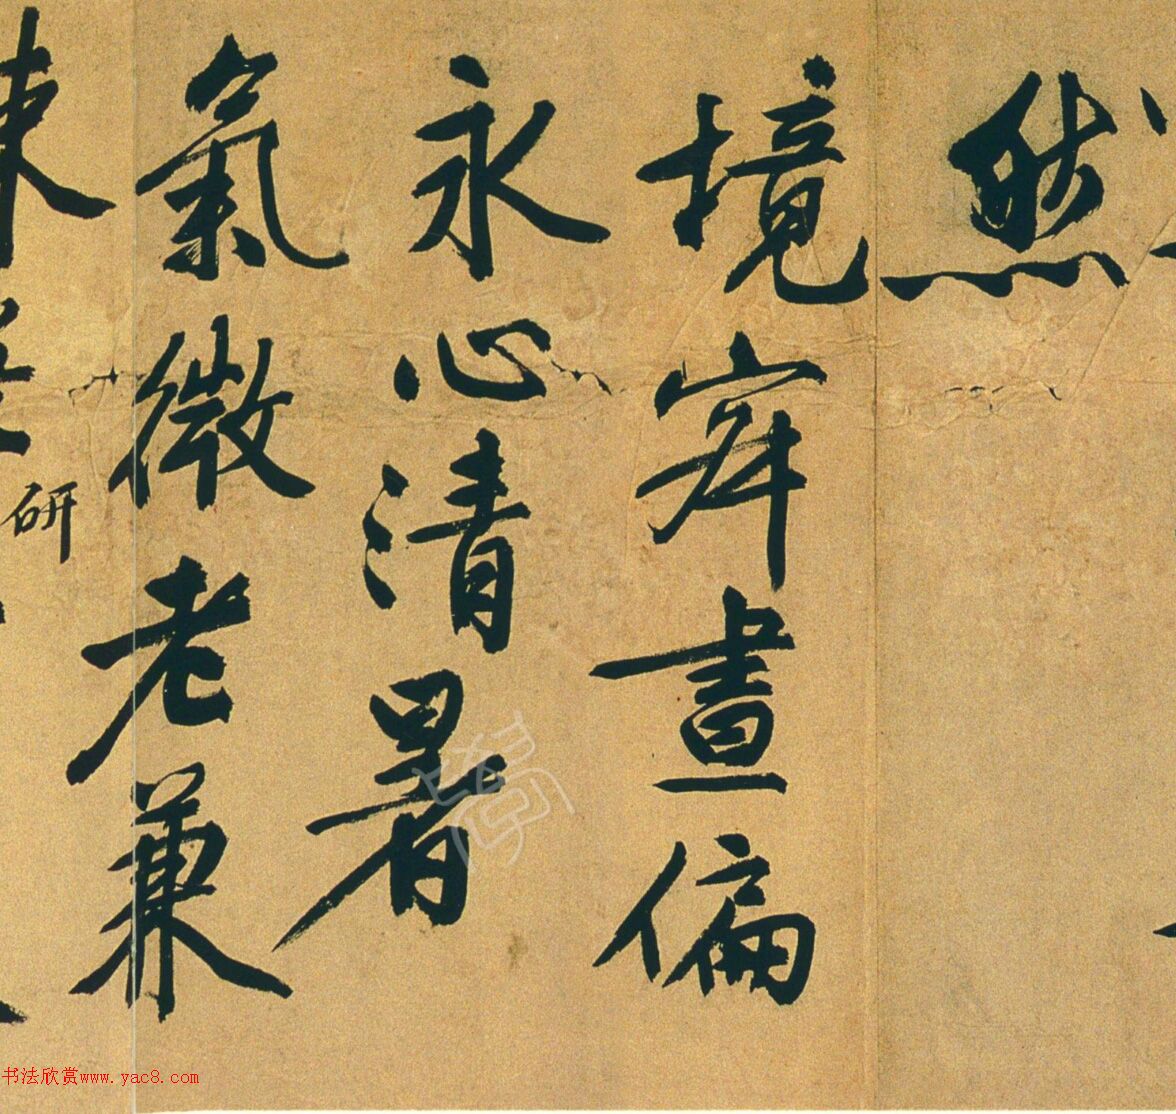 然
境寂晝偏
永心清暑
氣微老兼
研
书法欣赏www.yac8.com